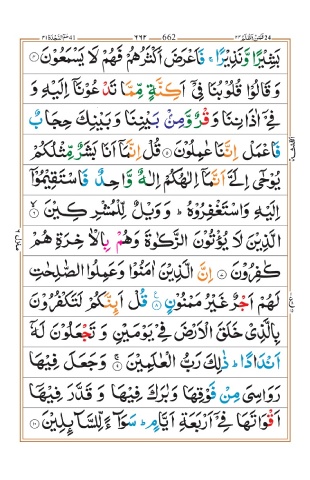 حٰمٓ السجدة ٤١ ٦٦٢ 662 فمن اظلم ٢٤
بَشِيْرًا وَّنَذِيْرًا ۚ فَاَعْرَضَ اَكْثَرُهُمْ فَهُمْ لَا يَسْمَعُوْنَ ۝۴
وَقَالُوْا قُلُوْبُنَا فِيْۤ اَكِنَّةٍ مِّمَّا تَدْعُوْنَاۤ اِلَيْهِ وَ
فِيْۤ اٰذَانِنَا وَقْرٌ وَّمِنْۢ بَيْنِنَا وَبَيْنِكَ حِجَابٌ
فَاعْمَلْ اِنَّنَا عٰمِلُوْنَ ۝۵ قُلْ اِنَّمَاۤ اَنَا بَشَرٌ مِّثْلُكُمْ
يُوْحٰۤى اِلَيَّ اَنَّمَاۤ اِلٰهُكُمْ اِلٰهٌ وَّاحِدٌ فَاسْتَقِيْمُوْۤا
اِلَيْهِ وَاسْتَغْفِرُوْهُ ؕ وَوَيْلٌ لِّلْمُشْرِكِيْنَ ۝۶
الَّذِيْنَ لَا يُؤْتُوْنَ الزَّكٰوةَ وَهُمْ بِالْاٰخِرَةِ هُمْ
كٰفِرُوْنَ ۝۷ اِنَّ الَّذِيْنَ اٰمَنُوْا وَعَمِلُوا الصّٰلِحٰتِ
لَهُمْ اَجْرٌ غَيْرُ مَمْنُوْنٍ ۝۸ قُلْ اَئِنَّكُمْ لَتَكْفُرُوْنَ
بِالَّذِيْ خَلَقَ الْاَرْضَ فِيْ يَوْمَيْنِ وَتَجْعَلُوْنَ لَهٗۤ
اَنْدَادًا ؕ ذٰلِكَ رَبُّ الْعٰلَمِيْنَ ۝۹ وَجَعَلَ فِيْهَا
رَوَاسِيَ مِنْ فَوْقِهَا وَبٰرَكَ فِيْهَا وَقَدَّرَ فِيْهَاۤ
اَقْوَاتَهَا فِيْۤ اَرْبَعَةِ اَيَّامٍ ؕ سَوَآءً لِّلسَّآئِلِيْنَ ۝۱۰